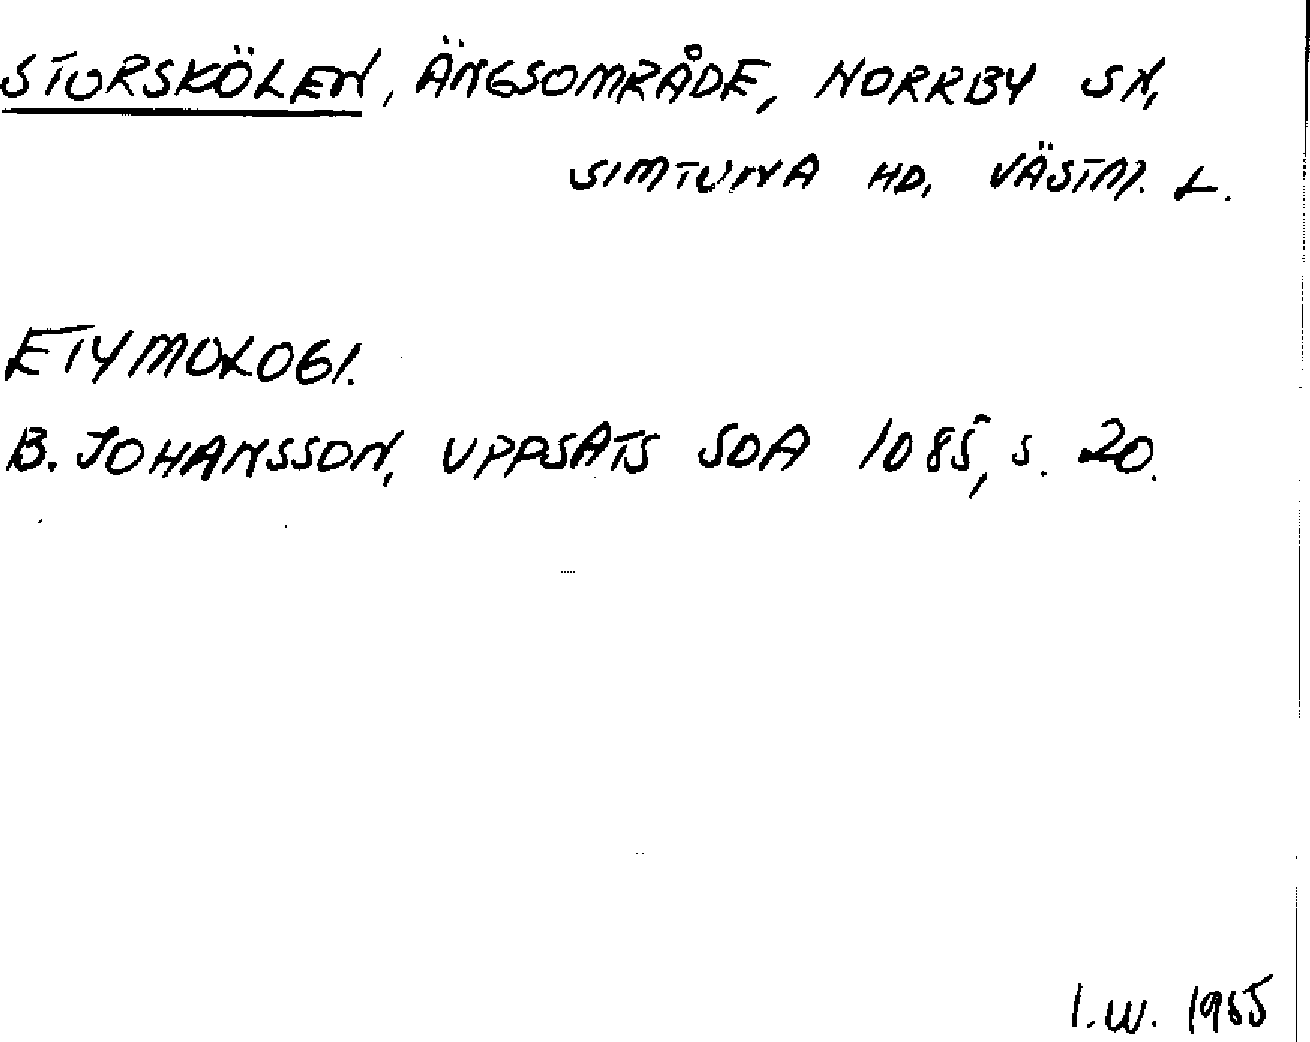 STORSKÖLEN, ÄNGSOMRÅDE, NORRBY SN,
SIMTUNA HD, VÄSTM. L.
ETYMOLOGI.
B. JOHANSSON, UPPSATS SOA 1085, S. 20.
I.W. 1955